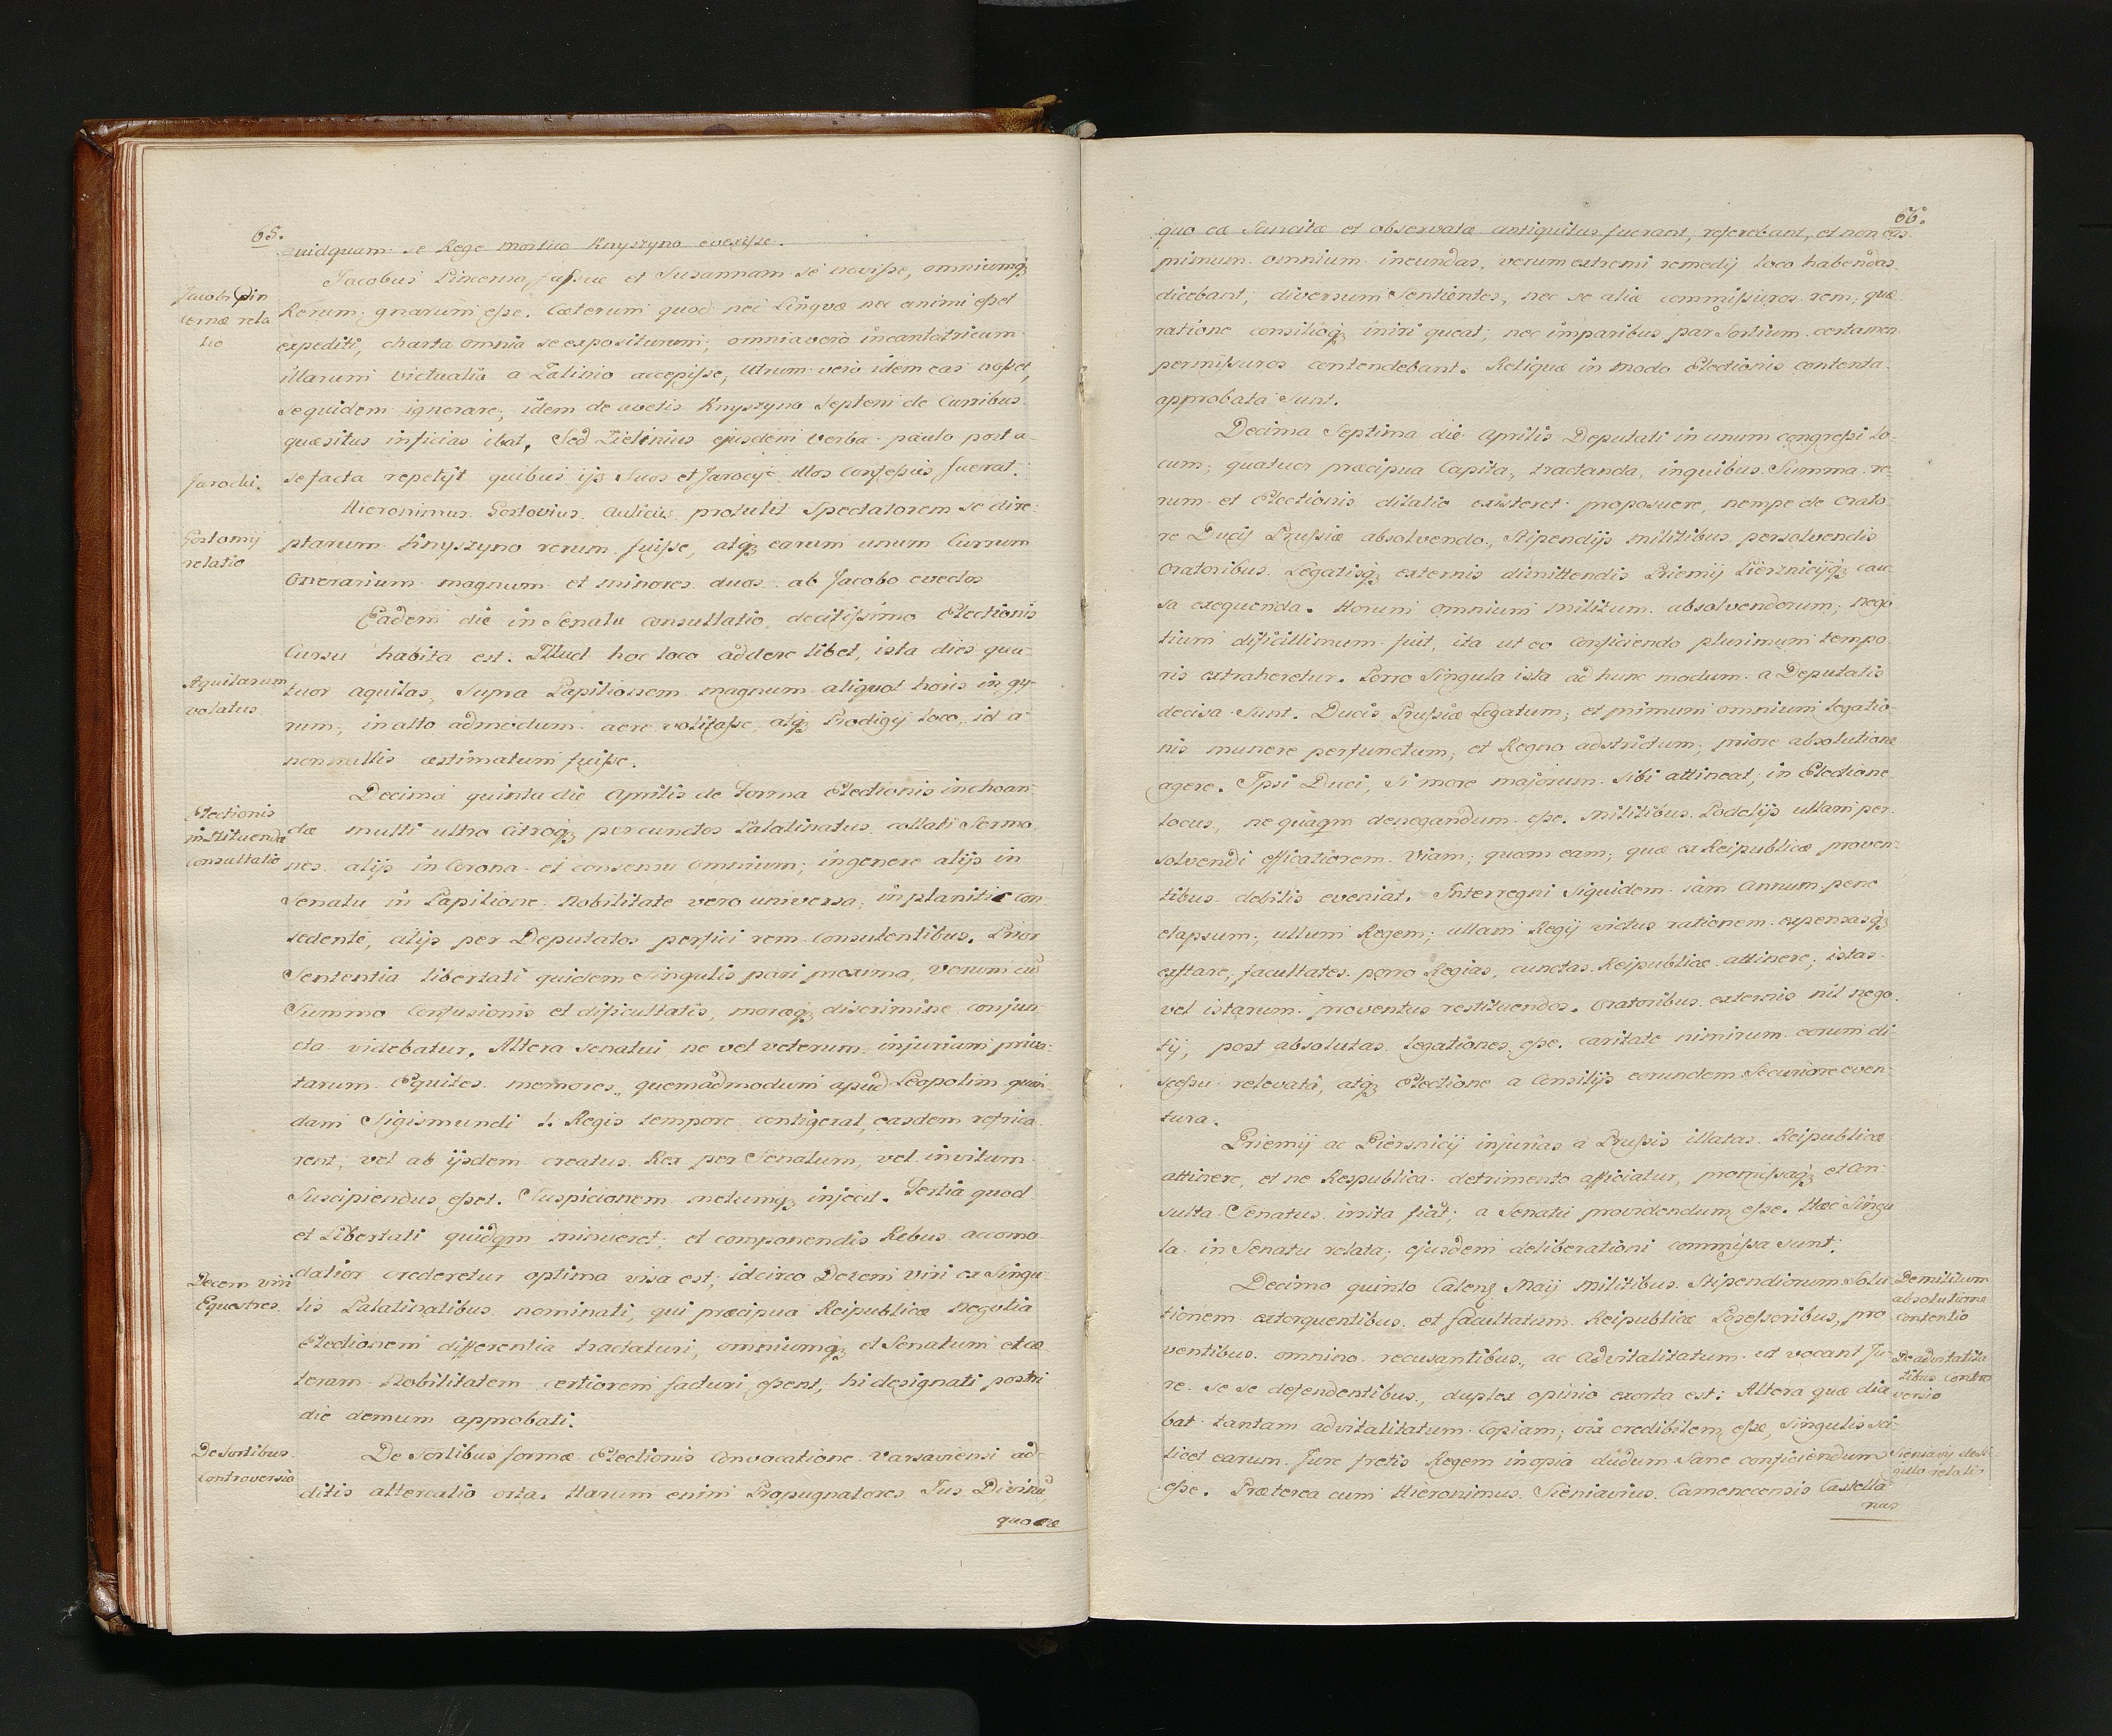 65.
quidquam se Rege mortuo Knyszyno evexisse.
Jacobi Pin
cernæ rela
tio
Jacobus Pincerna, Jussuæ et Susannam se novisse, omniumq3
Rerum gnarum esse. Cæterum quod nec Linguæ nec animi esset
expediti, charta omnia se expositurum; omnia vero incantatricum
illarum victualia a Zalinio accepisse, utrum vero idem eas nosset,
sequidem ignorare; idem de avetis Knyszyno Septem de Curribus
quæsitus inficias ibat. Sed Zielinius ejusdem verba paulo post a
Jarocki.
se facta repetijt quibus ijs Suos et Jarocije illos confessus fuerat.
Hieronimus Gostovius Aulicus protulit Spectatorem se dire-
Gostomij
relatio
ptarum Knyszyno rerum fuisse, atq3 earum unum Currum
Onerarium magnum et minores duos ab Jacobo evectos
Eadem die in Senatu consultatio, decitissimo Electionis
Cursu habita est. Illud hoc loco addere libet, ista dies qua-
Aquilarum
volatus
tuor aquilas, Supra Papilionem magnum aliquot horis in gy-
rum, in alto admodum aere volitasse, atq3 Prodigij loco, id a
nonnullis æstimatum fuisse.
Decima quinta die Aprilis de forma Electionis inchoan-
Electionis
instituendæ
consultatio
dæ multi ultro citroq3 per cunctos Palatinatus collati Sermo
nes alijs in Corona et consensu omnium; in genere alijs in
Senatu in Papilione Nobilitate vero universa; in planitie con-
sedente, alijs per Deputatos perfici rem Consulentibus. Prior
Sententia libertati quidem singulis pari proxima, verum cu
Summo Confusionis et dificultatis, moræq3 discrimine conjun
cta videbatur. Altera senatui ne vel veterum injuriam priva-
tarum Equites memores, quemadmodum apud Leopolim quon
dam Sigismundi I. Regis tempore contigerat, easdem refrica
rent, vel ab ijsdem creatus Rex per Senatum, vel invitum
Suscipiendus esset. Suspicionem metumq3 injecit. Tertia quod
et Libertati quidqm minueret, et componendis Rebus accomo
Decem viri
Equestres
datior crederetur optima visa est; idcirco Decem Viri ex Singu
lis Palatinatibus nominati, qui præcipua Reipublicæ Negotia
Electionem differentia tractaturi, omniumq3 et Senatum et cæ
teram Nobilitatem certiorem facturi essent, hi designati postri
die demum approbati.
De Sortibus
Controversia
De Sortibus formæ Electionis Convocatione Varsaviensi ad-
ditis altercatio orta. Harum enim Propugnatores Jus Divinu,
quo ea
66.
quo ea Sancita et observata antiquitus fuerant, referebant, et non eas
primum omnium ineundas, verum extremi remedij loco habendas
dicebant, diversum Sentientes, nec se aliæ commissuros rem, quæ
ratione consilioq3 iniri queat; nec imparibus par Sortium certamen
permissuros contendebant. Reliqua in modo Electionis contenta
approbata Sunt.
Decima Septima die Aprilis Deputati in unum congressi lo-
cum, quatuor præcipua Capita, tractanda, in quibus Summa re
rum et Electionis dilatio existeret proposuere, nempe de Orato-
re Ducij Prussiæ absolvendo, Stipendijs militibus persolvendis
Oratoribus Legatisq3 externis dimittendis Priemij Pierznicijq3 cau
sa exequenda. Horum omnium militum absolvendorum, nego
tium dificillimum fuit, ita ut eo Conficiendo plurimum tempo
ris extraheretur. Porro Singula ista ad hunc modum a Deputatis
decisa Sunt. Ducis Prussiæ Legatum, et primum omnium Legatio-
nis munere perfunctum, et Regno adstrictum, priore absolutione
agere. Ipsi Duci, Si more majorum Sibi attineat, in Electione
locus, ne quaqm denegandum esse. Militibus Podolijs ullam per
solvendi efficatiorem Viam, quam eam, quæ ex Reipublicæ proven-
tibus debitis eveniat. Interregni Siquidem iam Annum pene
elapsum, ullum Regem, ullam Regij victus rationem expensasq3
exstare, facultates porro Regias, cunctas Reipublicæ attinere, istas
vel istarum proventus restituendos. Oratoribus externis nil nego
tij, post absolutas Legationes, esse, caritate nimirum eorum di-
scessu relevata, atq3 Electione a Consilijs eorundem Securiore even
tura.
Priemij ac Piersnicij injurias a Prussis illatas Reipublicæ
attinere, et ne Respublica detrimento afficiatur, promissaq3 et Con-
sulta Senatus irrita fiat, a Senatu providendum esse. Hæc Singu
la in Senatu relata, ejusdem deliberationi commissa sunt.
Decimo quinto Calen3 Maij Militibus Stipendiorum Solu
De militum
absolutione
contentio
tionem extorquentibus et facultatum Reipublicæ Possessoribus, pro
ventibus omnino recusantibus, ac Advitalitatum ut vocant Ju-
De advitalita
tibus contro
versio
re se se defendentibus, duplex opinio exorta est: Altera quæ dice
bat tantam advitalitatum Copiam, vix credibilem esse, Singulis sci-
licet earum Jure fretis Regem inopia dudum Sane conficiendum
Sieniavij de Si-
gillo relatio
esse. Præterea cum Hieronimus Sieniavius Camenecensis Castella-
nus